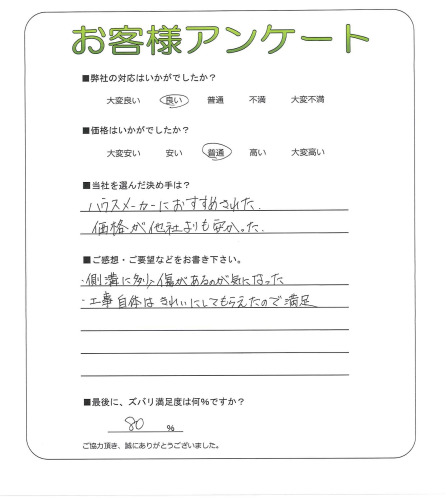 お客様アンケート
■弊社の対応はいかがでしたか?
大変良い 良い 普通 不満 大変不満
■価格はいかがでしたか?
大変安い 安い 普通 高い 大変高い
■当社を選んだ決め手は?
ハウスメーカーにおすすめされた.
価格が他社よりも安かった.
■ご感想・ご要望などをお書き下さい。
・側溝に多少傷があるのが気になった
・工事自体はきれいにしてもらえたので満足
■最後に、ズバリ満足度は何%ですか?
80 %
ご協力頂き、誠にありがとうございました。